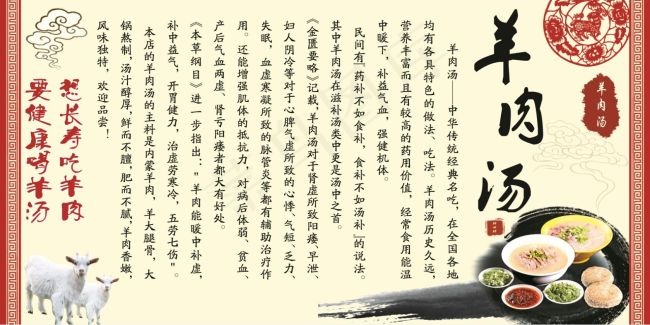 羊肉汤
羊肉汤
羊肉汤——中华传统经典名吃，在全国各地
均有各具特色的做法、吃法。羊肉汤历史久远，
营养丰富而且有较高的药用价值，经常食用能温
中暖下，补益气血，强健机体。
民间有"药补不如食补，食补不如汤补"的说法。
其中羊肉汤在滋补汤类中更是汤中之首。
《金匮要略》记载，羊肉汤对于肾虚所致阳痿、早泄、
妇人阴冷等对于心脾气虚所致的心悸、气短、乏力、
失眠，血虚寒凝所致的脉管炎等都有辅助治疗作
用。还能增强肌体的抵抗力，对病后体弱、贫血、
产后气血两虚、肾亏阳痿者都大有好处。
《本草纲目》进一步指出："羊肉能暖中补虚，
补中益气，开胃健力，治虚劳寒冷，五劳七伤"。
本店的羊肉汤的主料是内蒙羊肉，羊大腿骨，大
锅熬制，汤汁醇厚，鲜而不膻，肥而不腻，羊肉香嫩，
风味独特，欢迎品尝！
想长寿吃羊肉
要健康喝羊汤